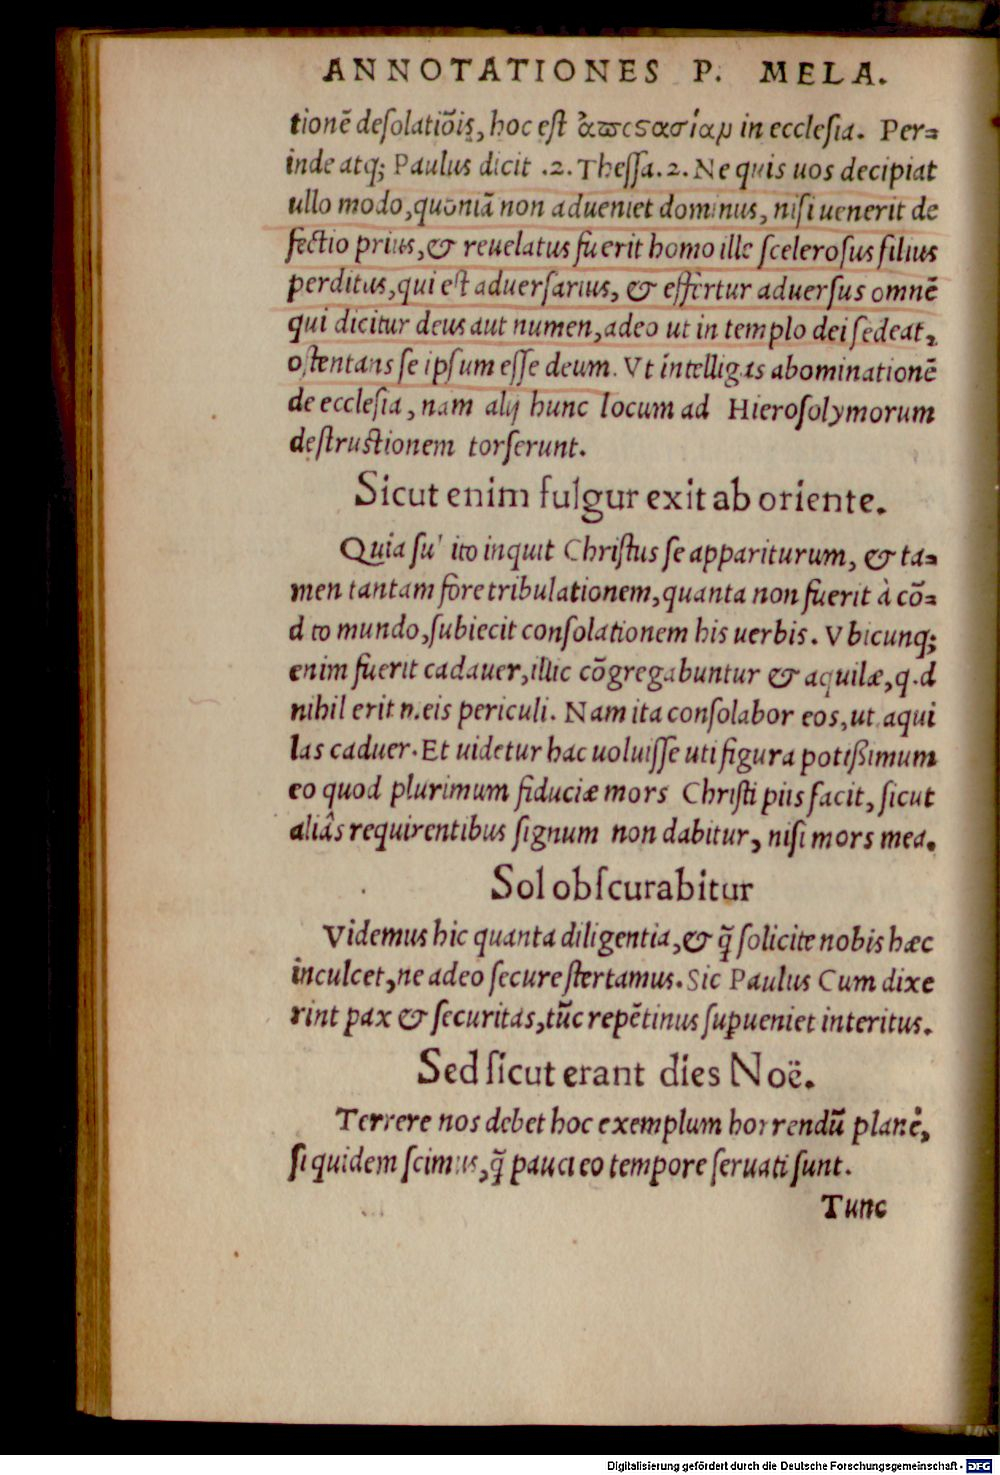 ANNOTATIONES P. MELA.
tionē deſolatiōis, hoc eſt ἀποϛασίαμ in eccleſia. Per=
inde atq; Paulus dicit .2. Theſſa. 2. Ne quis uos decipiat
ullo modo, quoniā non adueniet dominus, niſi uenerit de
fectio prius, & reuelatus fuerit homo ille ſceleroſus filius
perditus, qui eſt aduerſarius, & effertur aduerſus omnē
qui dicitur deus aut numen, adeo ut in templo dei ſedeat,
oſtentans ſe ipſum eſſe deum. Vt intelligas abominationē
de eccleſia, nam alij hunc locum ad Hieroſolymorum
deſtructionem torſerunt.
Sicut enim fulgur exit ab oriente.
Quia ſu' ito inquit Chriſtus ſe appariturum, & ta=
men tantam fore tribulationem, quanta non fuerit à cō=
d to mundo, ſubiecit conſolationem his uerbis. Vbicunq;
enim fuerit cadauer, illic cōgregabuntur & aquilæ, q.d
nihil erit n.eis periculi. Nam ita conſolabor eos, ut aqui
las caduer. Et uidetur hac uoluiſſe uti figura potißimum
eo quod plurimum fiduciæ mors Chriſti piis facit, ſicut
aliâs requirentibus ſignum non dabitur, niſi mors mea.
Sol obſcurabitur
Videmus hic quanta diligentia, & q̃ ſolicite nobis hæc
inculcet, ne adeo ſecure ſtertamus. Sic Paulus Cum dixe
rint pax & ſecuritas, tūc repētinus ſuꝑueniet interitus.
Sed ſicut erant dies Noë.
Terrere nos debet hoc exemplum horrendū planè,
ſi quidem ſcimus, q̃ pauci eo tempore ſeruati ſunt.
Tunc
Digitalisierung gefördert durch die Deutsche Forschungsgemeinschaft - DFG